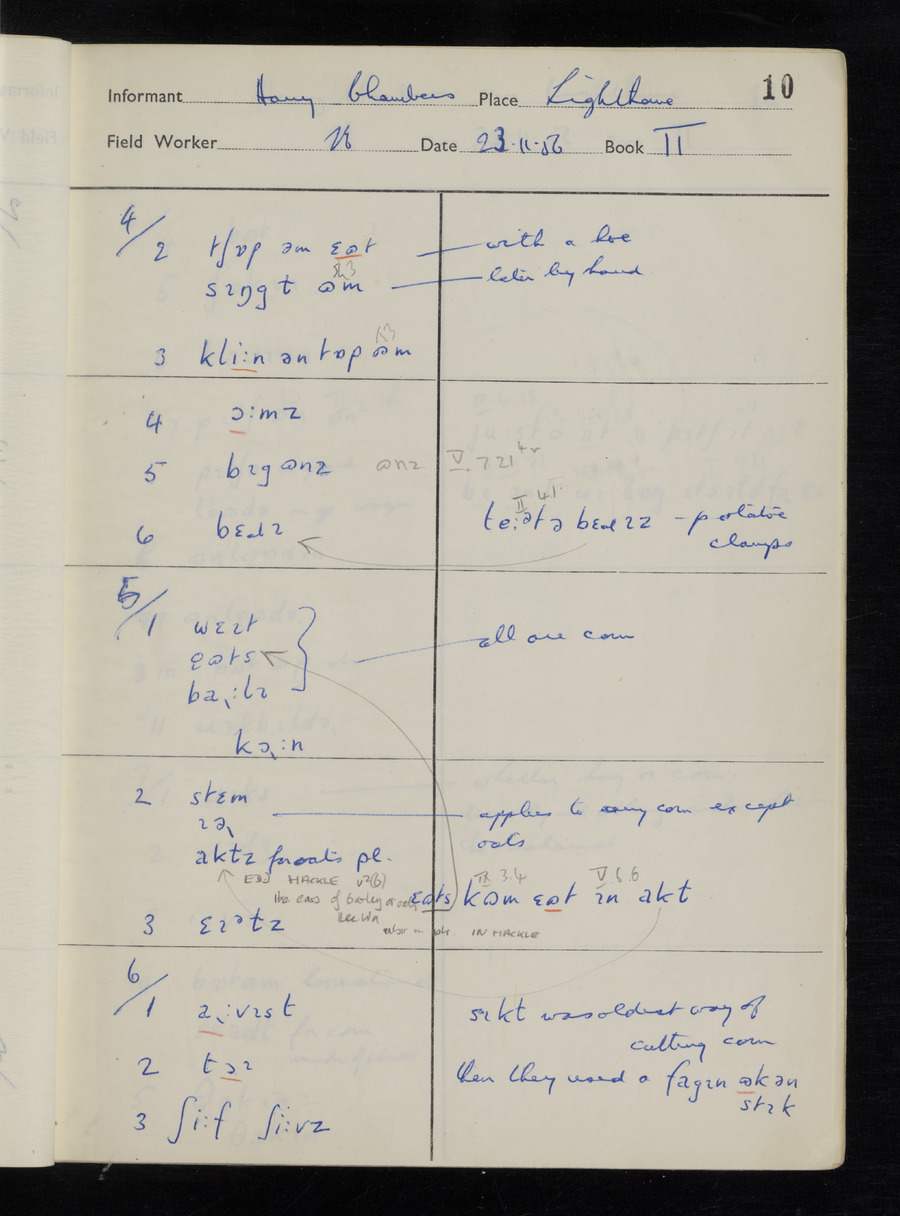 10
Informant Harry Chambers Place Lighthorne
Field Worker Date 23.11.56 Book II
4/2 tʃɒp əm ɛɷt — with a hoe
sɪŋgɫ ɷm — later by hand
3 kli:n ən tɒp ɷm
4 ɔ:mz
5 bɪgɷnz ɷnz V.7.21
6 bɛdɪ te:ətə bɛdɪz – potatoe
II 4.1.
clamps
5/1 wɛɪt
ɷts all are corn
ba:lɪ
kɔ:n
2 stɛm
ɪə applies to any corn except
oats
aktz for oats pl.
EDD HACKLE v2(6) IX 3.4 V 6.6
the ears of barley or oats ɷts kɷm ɛɷt ɪn akt
3 ɛɪətz IN HACKLE
6/1 a:vɪst sɪkt was oldest way of
cutting corn
2 tɔɪ then they used a fagɪn ɷk ən
stɪk
3 ʃi:f ʃi:vz